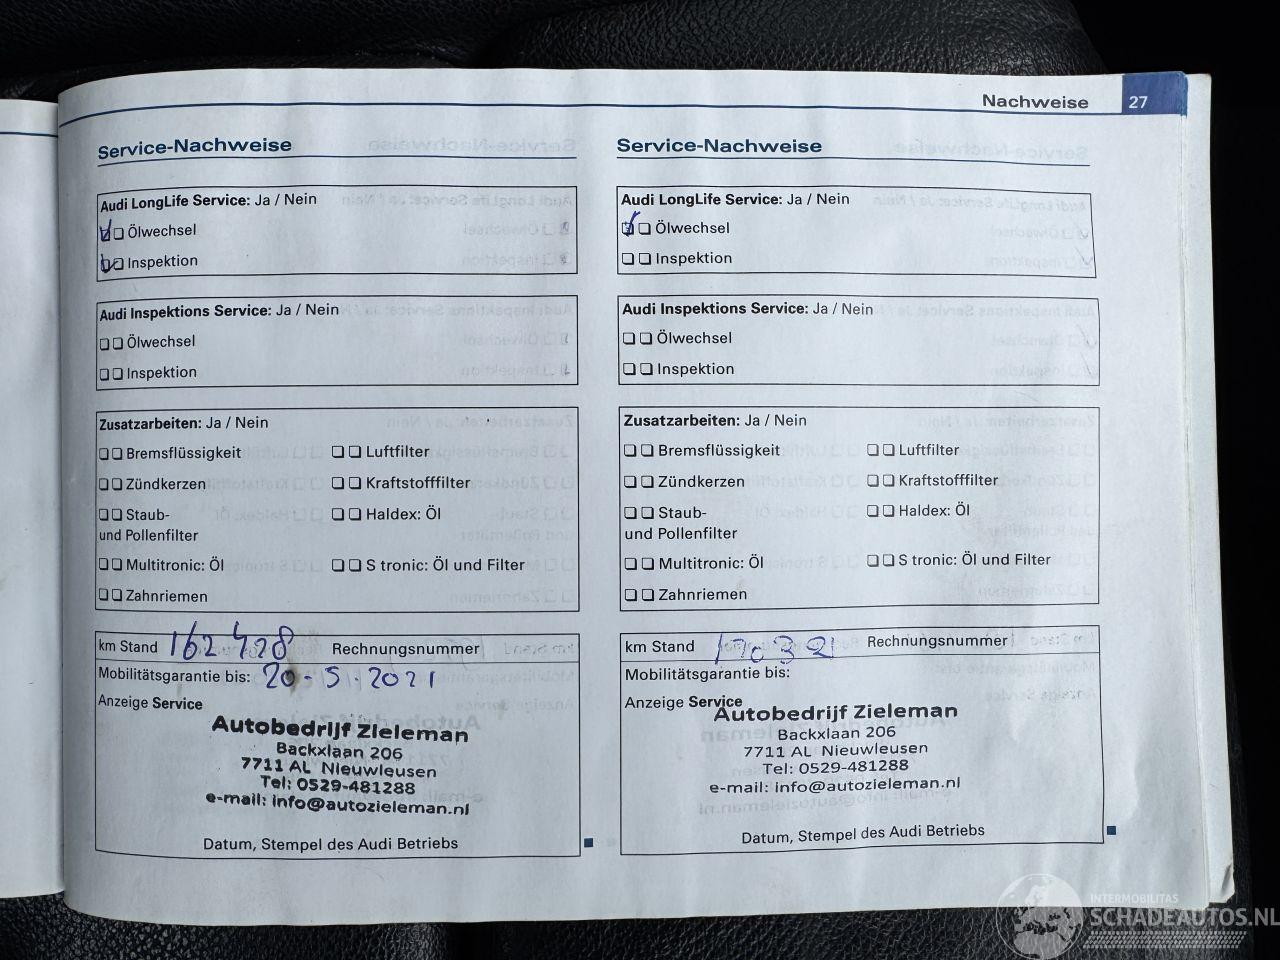 Nachweise 27
Service-Nachweise
Audi LongLife Service: Ja / Nein
Ölwechsel
Inspektion
Audi Inspektions Service: Ja / Nein
Ölwechsel
Inspektion
Zusatzarbeiten: Ja / Nein
Bremsflüssigkeit Luftfilter
Zündkerzen Kraftstofffilter
Staub- Haldex: Öl
und Pollenfilter
Multitronic: Öl S tronic: Öl und Filter
Zahnriemen
km Stand 162.428 Rechnungsnummer
Mobilitätsgarantie bis: 20-5-2021
Anzeige Service
Autobedrijf Zieleman
Backxlaan 206
7711 AL Nieuwleusen
Tel: 0529-481288
e-mail: info@autozieleman.nl
Datum, Stempel des Audi Betriebs
Service-Nachweise
Audi LongLife Service: Ja / Nein
Ölwechsel
Inspektion
Audi Inspektions Service: Ja / Nein
Ölwechsel
Inspektion
Zusatzarbeiten: Ja / Nein
Bremsflüssigkeit Luftfilter
Zündkerzen Kraftstofffilter
Staub- Haldex: Öl
und Pollenfilter
Multitronic: Öl S tronic: Öl und Filter
Zahnriemen
km Stand Rechnungsnummer
Mobilitätsgarantie bis:
Anzeige Service
Autobedrijf Zieleman
Backxlaan 206
7711 AL Nieuwleusen
Tel: 0529-481288
e-mail: info@autozieleman.nl
Datum, Stempel des Audi Betriebs
INTERMOBILITAS
SCHADEAUTOS.NL